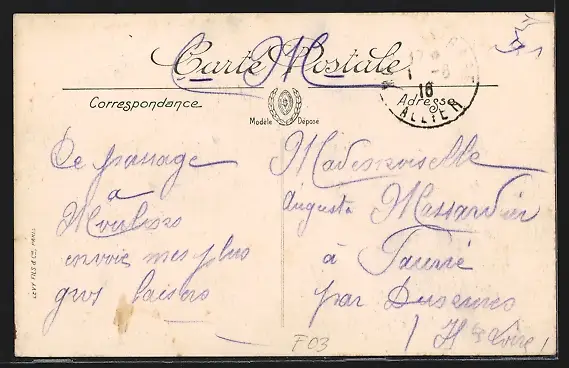 Carte Postale
FM
Correspondance
Adresse
Modèle Déposé
1 -8
16
ALLIER
LEVY FILS & Cie, PARIS
De passage
a
Moulins
envoie mes plus
gros baisers
Mademoiselle
Augusta Massardier
à
par
Hte Loire
F03